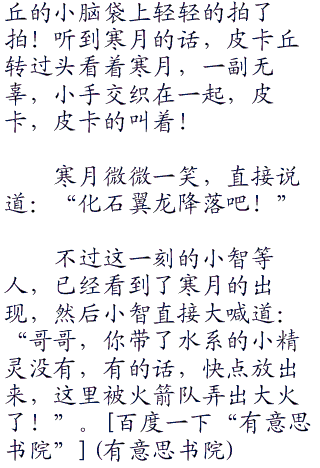 丘的小脑袋上轻轻的拍了
拍！听到寒月的话，皮卡丘
转过头看着寒月，一副无
辜，小手交织在一起，皮
卡，皮卡的叫着！
寒月微微一笑，直接说
道：“化石翼龙降落吧！”
不过这一刻的小智等
人，已经看到了寒月的出
现，然后小智直接大喊道：
“哥哥，你带了水系的小精
灵没有，有的话，快点放出
来，这里被火箭队弄出大火
了！”。[百度一下“有意思
书院”](有意思书院)